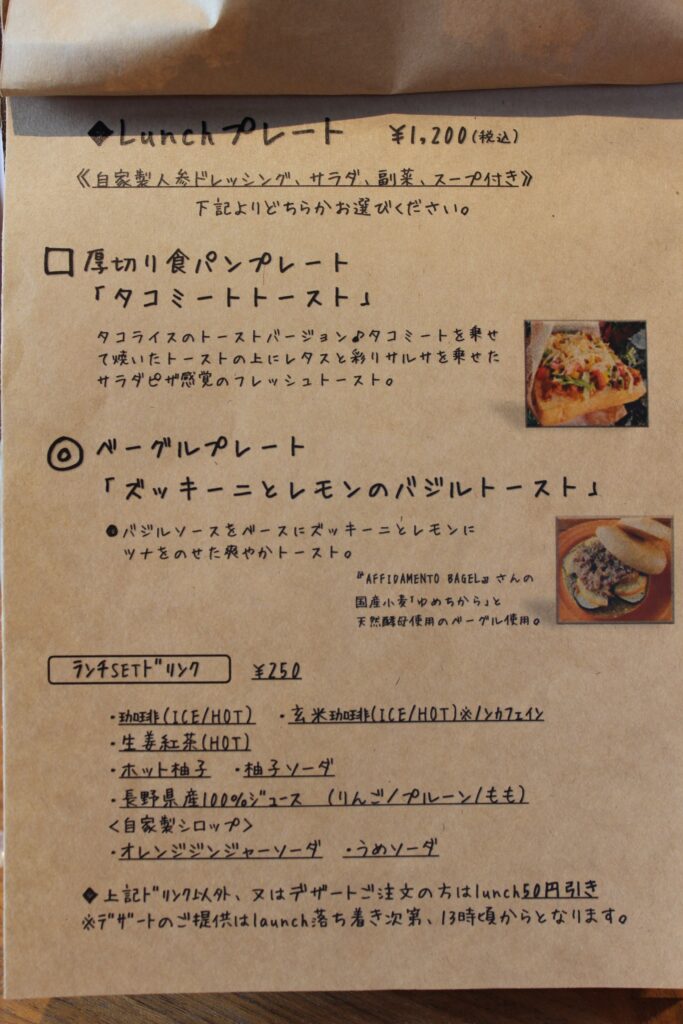 ◆Lunchプレート ¥1,200(税込)
《自家製人参ドレッシング、サラダ、副菜、スープ付き》
下記よりどちらかお選びください。
□厚切り食パンプレート
「タコミートトースト」
タコライスのトーストバージョン♪タコミートを乗せ
て焼いたトーストの上にレタスと彩りサルサを乗せた
サラダピザ感覚のフレッシュトースト。
◎ベーグルプレート
「ズッキーニとレモンのバジルトースト」
●バジルソースをベースにズッキーニとレモンに
ツナをのせた爽やかトースト。
『AFFIDAMENTO BAGEL』さんの
国産小麦「ゆめちから」と
天然酵母使用のベーグル使用。
ランチSETドリンク ¥250
・珈琲(ICE/HOT) ・玄米珈琲(ICE/HOT)※ノンカフェイン
・生姜紅茶(HOT)
・ホット柚子 ・柚子ソーダ
・長野県産100%ジュース (りんご/プルーン/もも)
<自家製シロップ>
・オレンジジンジャーソーダ ・うめソーダ
◆上記ドリンク以外、又はデザートご注文の方はlunch50円引き
※デザートのご提供はlaunch落ち着き次第、13時頃からとなります。